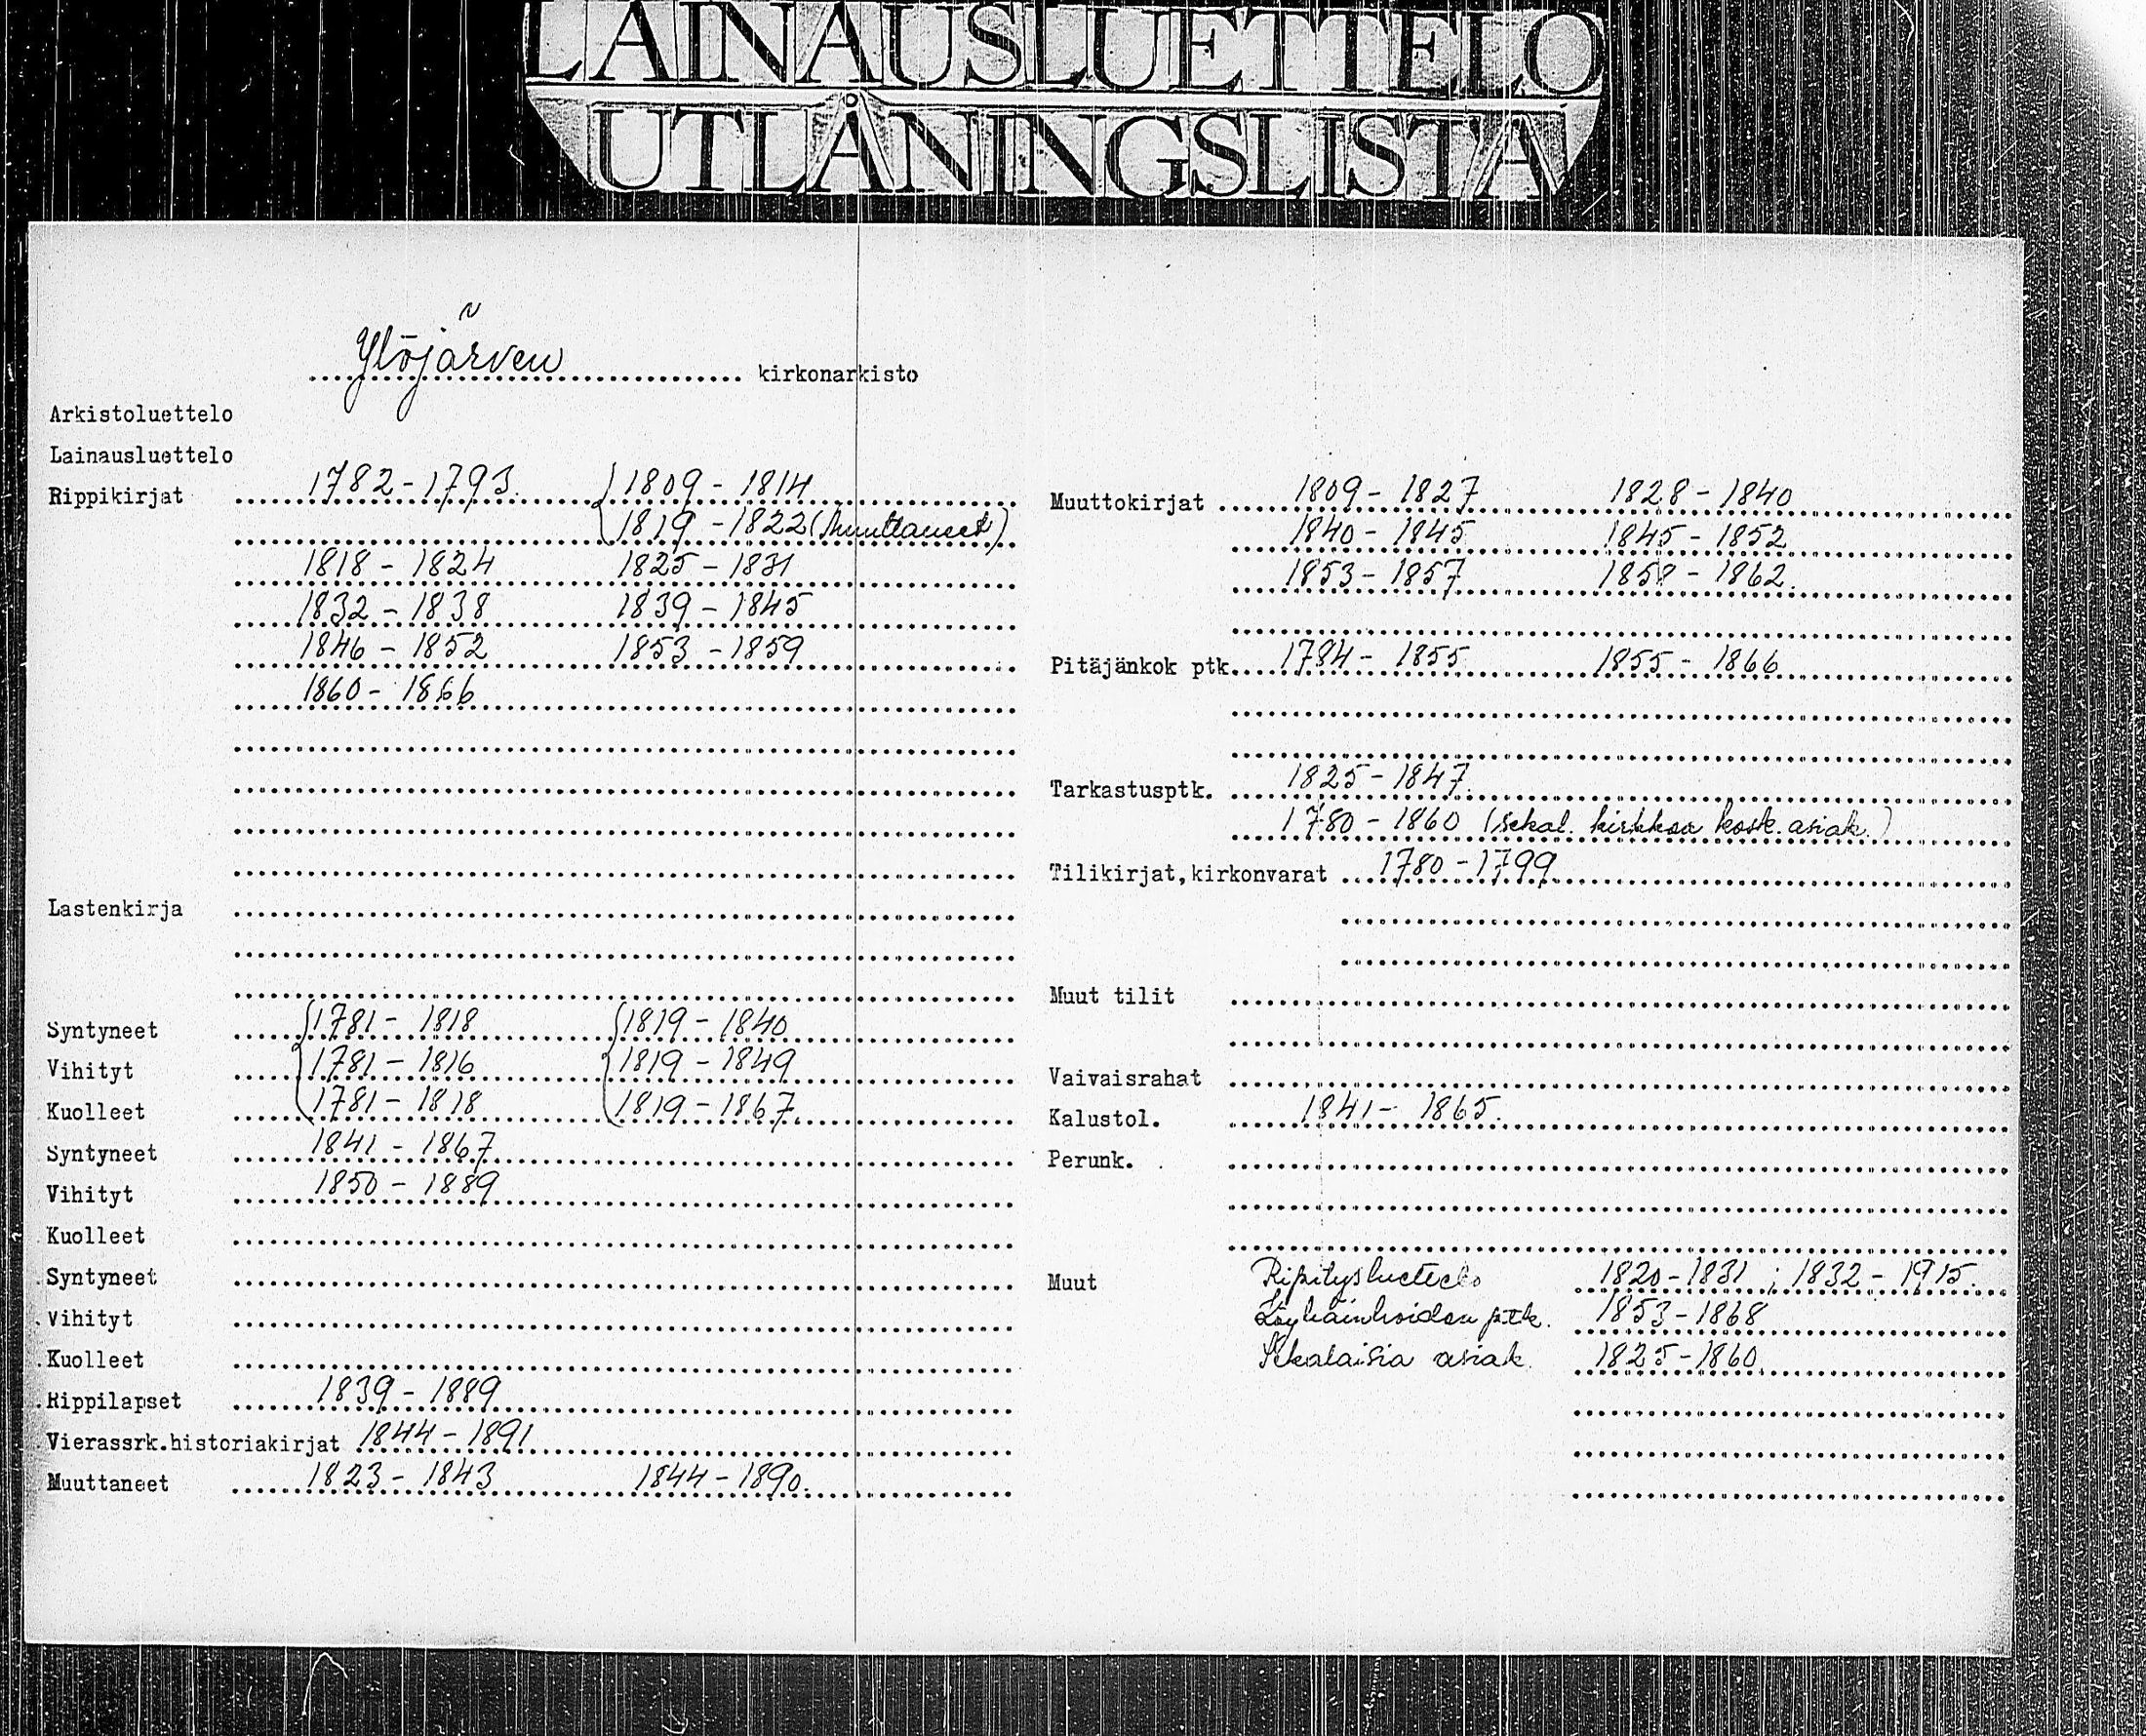 LAINAUSLUETTELO
UTLÅNINGSLISTA
Ylöjärven kirkonarkisto
Arkistoluettelo
Lainausluettelo
Rippikirjat 1782-1793. 1809-1814
1819-1822 (Muuttaneet)
1818-1824 1825-1831
1832-1838 1839-1845
1846-1852 1853-1859
1860-1866
Lastenkirja
Syntyneet 1781-1818 1819-1840
Vihityt 1781-1816 1819-1849
Kuolleet 1781-1818 1819-1867.
Syntyneet 1841-1867
Vihityt 1850-1889
Kuolleet
Syntyneet
Vihityt
Kuolleet
Rippilapset 1839-1889
Vierassrk.historiakirjat 1844-1891
Muuttaneet 1823-1843 1844-1890.
Muuttokirjat 1809-1827 1828-1840
1840-1845 1845-1852
1853-1857 1858-1862.
Pitäjänkok ptk. 1784-1855 1855-1866
Tarkastusptk. 1825-1847.
1780-1860 (sekal. kirkkoa kosk. asiak.)
Tilikirjat,kirkonvarat 1780-1799
Muut tilit
Vaivaisrahat
Kalustol. 1841-1865.
Perunk.
Muut Ripitysluettelo 1820-1831; 1832-1915.
Köyhäinhoidon ptk. 1853-1868
Sekalaisia asiak. 1825-1860.